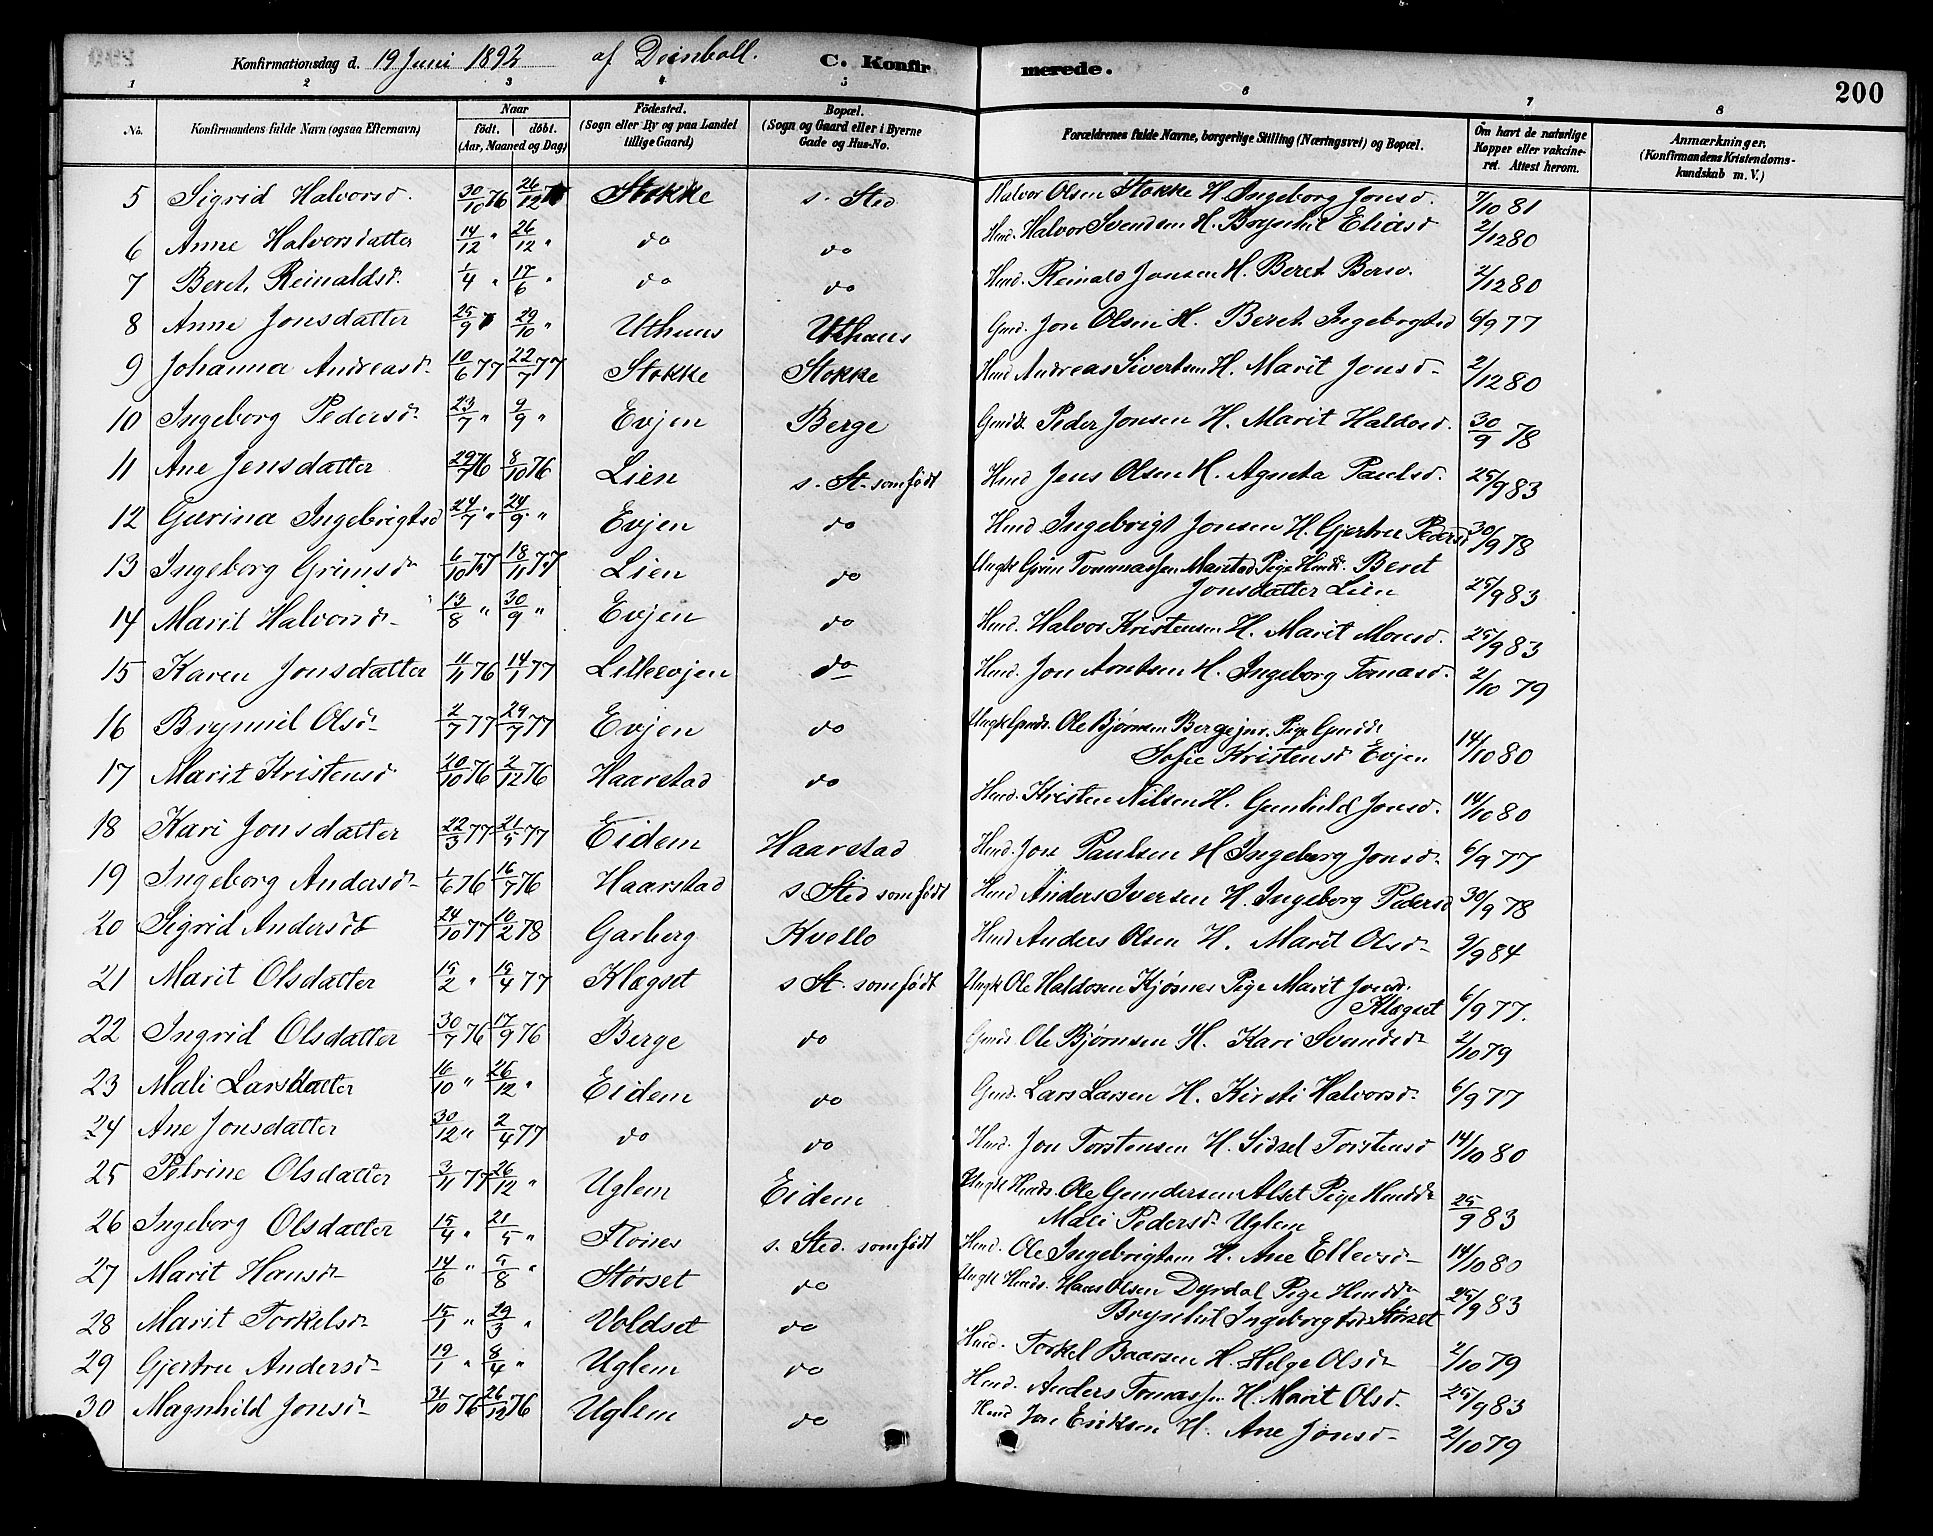 Konfirmationsdag d. 19 Juni 1892 af Deinboll. C. Konfirmerede. 200
1 2 3 4 5 6 7 8
No. Konfirmandens fulde Navn (ogsaa Efternavn) Naar født. døbt. (Aar, Maaned og Dag) Fødested. (Sogn eller By og paa Landet tillige Gaard) Bopæl. (Sogn og Gaard eller i Byerne Gade og Hus-No. Forældrenes fulde Navne, borgerlige Stilling (Næringsvei) og Bopæl. Om havt de naturlige Kopper eller vakcineret. Attest herom. Anmærkninger. (Konfirmandens Kristendomskundskab m. V.)
5 Sigrid Halvorsd. 30/10 76 26/12 Stokke s. Sted Halvor Olsen Stokke H. Ingeborg Jonsd. 7/10 81
6 Anne Halvorsdatter 14/12 " 26/12 " do do Hmd. Halvor Svendsen H. Brynhil Eliasd 2/12 80
7 Beret Reinaldsd. 1/4 " 17/6 " do do Hmd. Reinald Jonsen H. Beret Bersd. 2/12 80
8 Anne Jonsdatter 25/9 29/10 " Uthuus Uthuus Gmd. Jon Olsen H. Beret Ingebrigtsd 6/9 77
9 Johanna Andreasd. 10/6 77 22/7 77 Stokke Stokke Hmd Andreas Sivertsen H. Marit Jonsd. 2/12 80
10 Ingeborg Pedersd. 23/7 " 9/9 " Evjen Berge Gmds. Peder Jonsen H. Marit Haldosd. 30/9 78
11 Ane Jensdatter 29/7 76 8/10 76 Lien s. St. som født Hmd Jens Olsen H. Agneta Paulsd. 25/9 83
12 Gurina Ingebrigtsd 24/7 " 24/9 " Evjen do Hmd Ingebrigt Jonsen H. Gjertru Pedersd 30/9 78
13 Ingeborg Grimsd. 6/10 77 18/11 77 Lien do Ungk Grim Tommassen Marstad Pige Hmds. Beret
Jonsdatter Lien 25/9 83
14 Marit Halvorsd. 13/8 " 30/9 " Evjen do Hmd. Halvor Kristensen H. Marit Monsd. 25/9 83
15 Karen Jonsdatter 11/11 76 14/1 77 Lilleevjen do Hmd. Jon Arntsen H. Ingeborg Tomasd. 2/10 79
16 Brynnil Olsd. 2/7 77 29/7 77 Evjen do Ungk Gmds. Ole Bjørnsen Berge jnr. Pige Gmdd.
Sofie Kristensd Evjen 14/10 80
17 Marit Kristensd 20/10 76 2/12 76 Haarstad do Hmd. Kristen Nilsen H. Gunhild Jonsd. 14/10 80
18 Kari Jonsdatter 22/3 77 21/5 77 Eidem Haarstad Hmd. Jon Paulsen H Ingeborg Jonsd. 6/9 77
19 Ingeborg Andersd. 1/6 76 16/7 76 Haarstad s. Sted som født Hmd Anders Iversen H. Ingeborg Pedersd 30/9 78
20 Sigrid Andersdt 24/10 77 10/2 78 Garberg Kvello Hmd Anders Olsen H. Marit Olsd. 9/9 84
21 Marit Olsdatter 15/2 " 15/4 77 Klægset s St. som født Ungk Ole Haldosen Kjøsnes Pige Marit Jonsd.
Klægset 6/9 77.
22 Ingrid Olsdatter 30/7 76 17/9 76 Berge do Gmds. Ole Bjørnsen H. Kari Svendsd. 2/10 79
23 Mali Larsdatter 16/10 " 26/12 " Eidem do Gmd. Lars Larsen H. Kirsti Halvorsd. 6/9 77
24 Ane Jonsdatter 30/12 " 2/4 77 do do Hmd. Jon Torstensen H. Sidsel Torstensd 14/10 80
25 Petrine Olsdatter 3/11 77 26/12 " Uglem Eidem Ungk Hmds. Ole Gundersen Alset Pige Hmdd.
Mali Pedersd. Uglem 25/9 83
26 Ingeborg Olsdatter 15/4 " 21/5 " Flønes s. Sted. som født Hmd. Ole Ingebrigtsen H. Ane Ellevsd. 14/10 80
27 Marit Hansd. 14/6 " 5/8 " Størset do Ungk Hmds. Hans Olsen Dyrdal Pige Hmdd.
Brynhil Ingebrigtsd. Størset 25/9 83
28 Marit Torkelsd. 15/1 " 29/3 " Voldset do Hmd. Torkel Baarsen H. Helge Olsd. 2/10 79
29 Gjertru Andersd. 19/1 " 8/4 " Uglem do Hmd. Anders Tomassen H. Marit Olsd. 25/9 83
30 Magnhild Jonsd. 31/10 76 26/12 76 Uglem do Hmd Jon Eriksen H. Ane Jonsd. 2/10 79